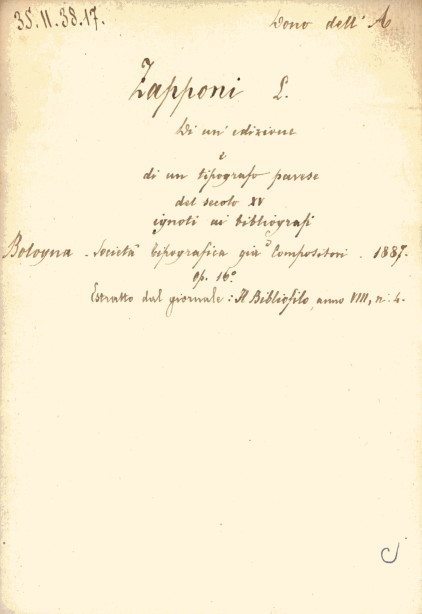 35.11.38.17.
Dono dell' A
Zapponi L.
Di un' edizione
e
di un tipografo pavese
del secolo XV
ignoti ai bibliografi
Bologna. Società tipografica già Compositori. 1887.
op. 16º
Estratto dal giornale: Il Bibliofilo, anno VIII, n. 4.